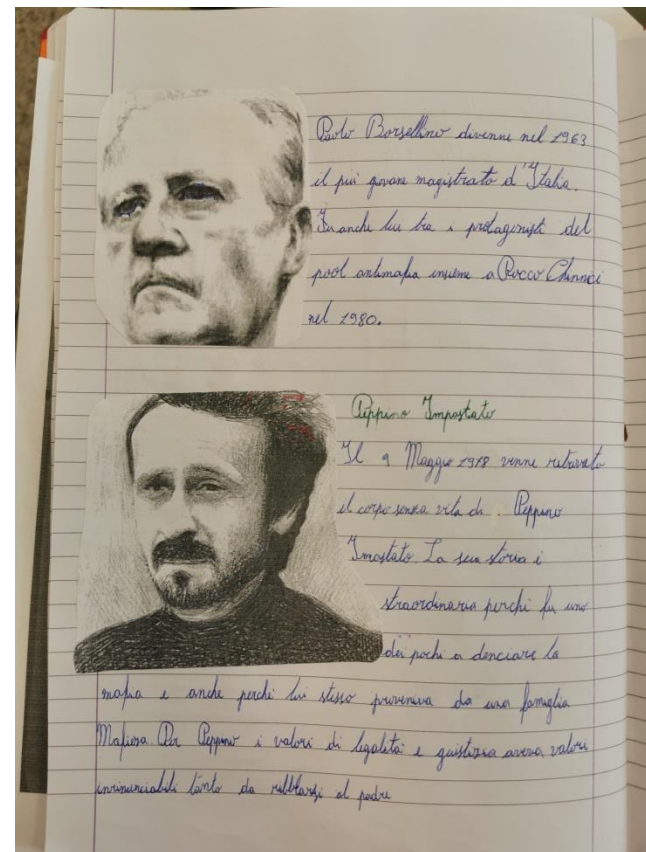 Paolo Borsellino divenne nel 1963
il più giovane magistrato d'Italia.
Fu anche lui tra i protagonisti del
pool antimafia insieme a Rocco Chinnici
nel 1980.
Peppino Impostato
Il 9 Maggio 1978 venne ritrovato
il corpo senza vita di Peppino
Imostato. La sua storia è
straordinaria perchè fu uno
dei pochi a denciare la
mafia e anche perchè lui stesso proveniva da una famiglia
Mafiosa. Per Peppino i valori di legalità e guistizia aveva valori
inrinunciabili tanto da ribbларsi al padre